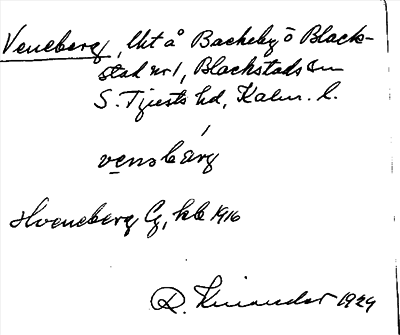 Veneberg, lht å Backeby o Black-
stad nr 1, Blackstads sn
S. Tjusts hd, Kalm. l.
vensbärg
Hveneberg Lg, kb 1916
R. Kinander 1929